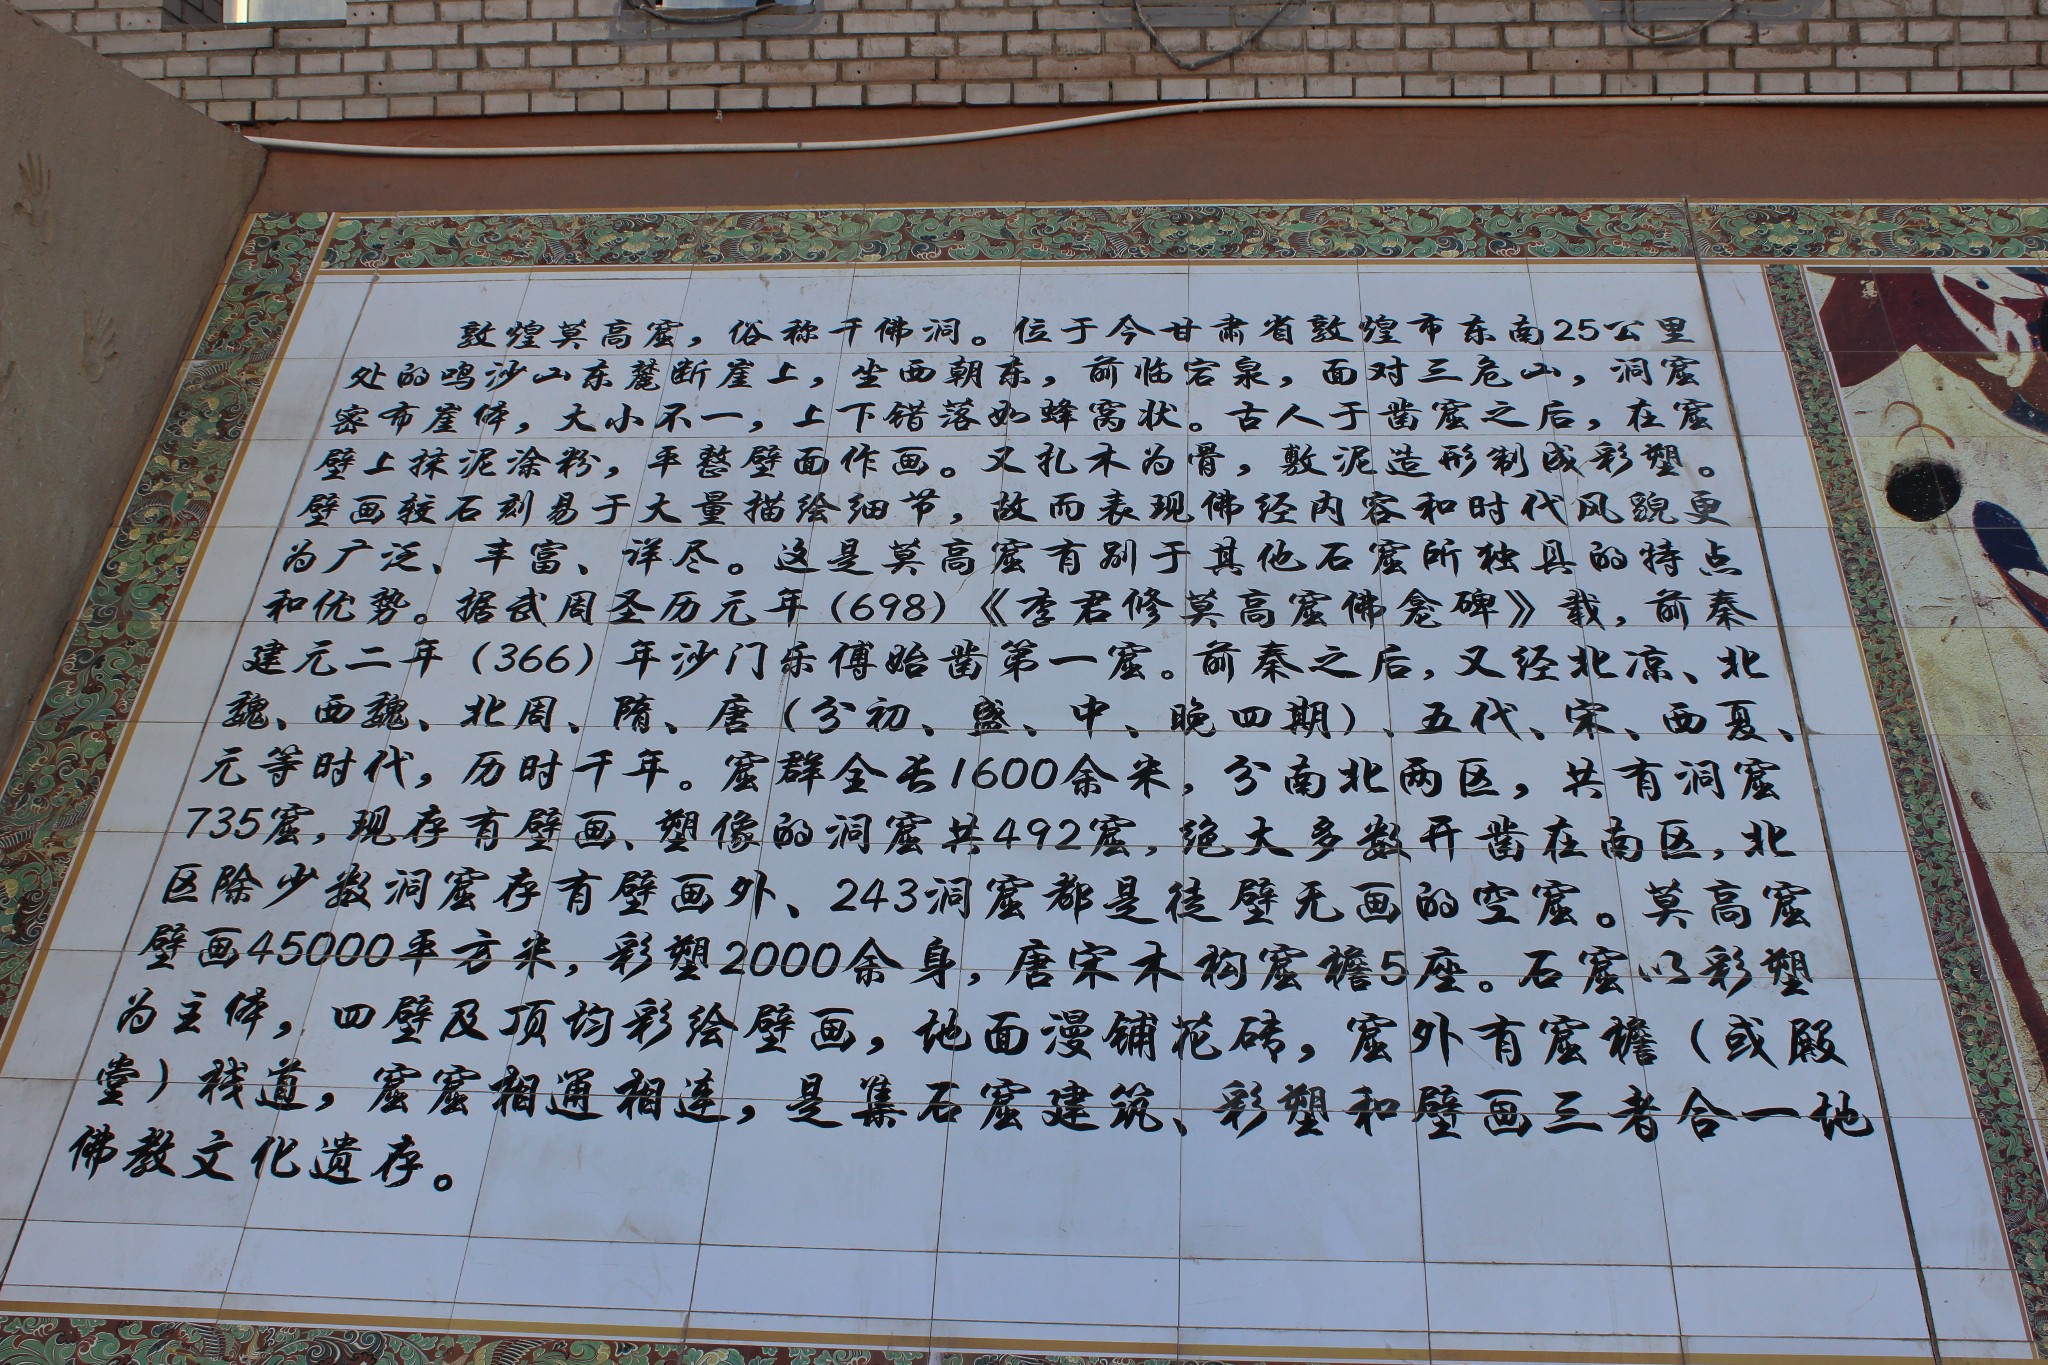 敦煌莫高窟，俗称千佛洞。位于今甘肃省敦煌市东南25公里
处的鸣沙山东麓断崖上，坐西朝东，前临宕泉，面对三危山，洞窟
密布崖体，大小不一，上下错落如蜂窝状。古人于凿窟之后，在窟
壁上抹泥涂粉，平整壁面作画。又扎木为骨，敷泥造形制成彩塑。
壁画较石刻易于大量描绘细节，故而表现佛经内容和时代风貌更
为广泛、丰富、详尽。这是莫高窟有别于其他石窟所独具的特点
和优势。据武周圣历元年(698)《李君修莫高窟佛龛碑》载，前秦
建元二年(366)年沙门乐傅始凿第一窟。前秦之后，又经北凉、北
魏、西魏、北周、隋、唐(分初、盛、中、晚四期)、五代、宋、西夏、
元等时代，历时千年。窟群全长1600余米，分南北两区，共有洞窟
735窟，现存有壁画、塑像的洞窟共492窟，绝大多数开凿在南区，北
区除少数洞窟存有壁画外、243洞窟都是徒壁无画的空窟。莫高窟
壁画45000平方米，彩塑2000余身，唐宋木构窟檐5座。石窟以彩塑
为主体，四壁及顶均彩绘壁画，地面漫铺花砖，窟外有窟檐(或殿
堂)栈道，窟窟相通相连，是集石窟建筑、彩塑和壁画三者合一地
佛教文化遗存。